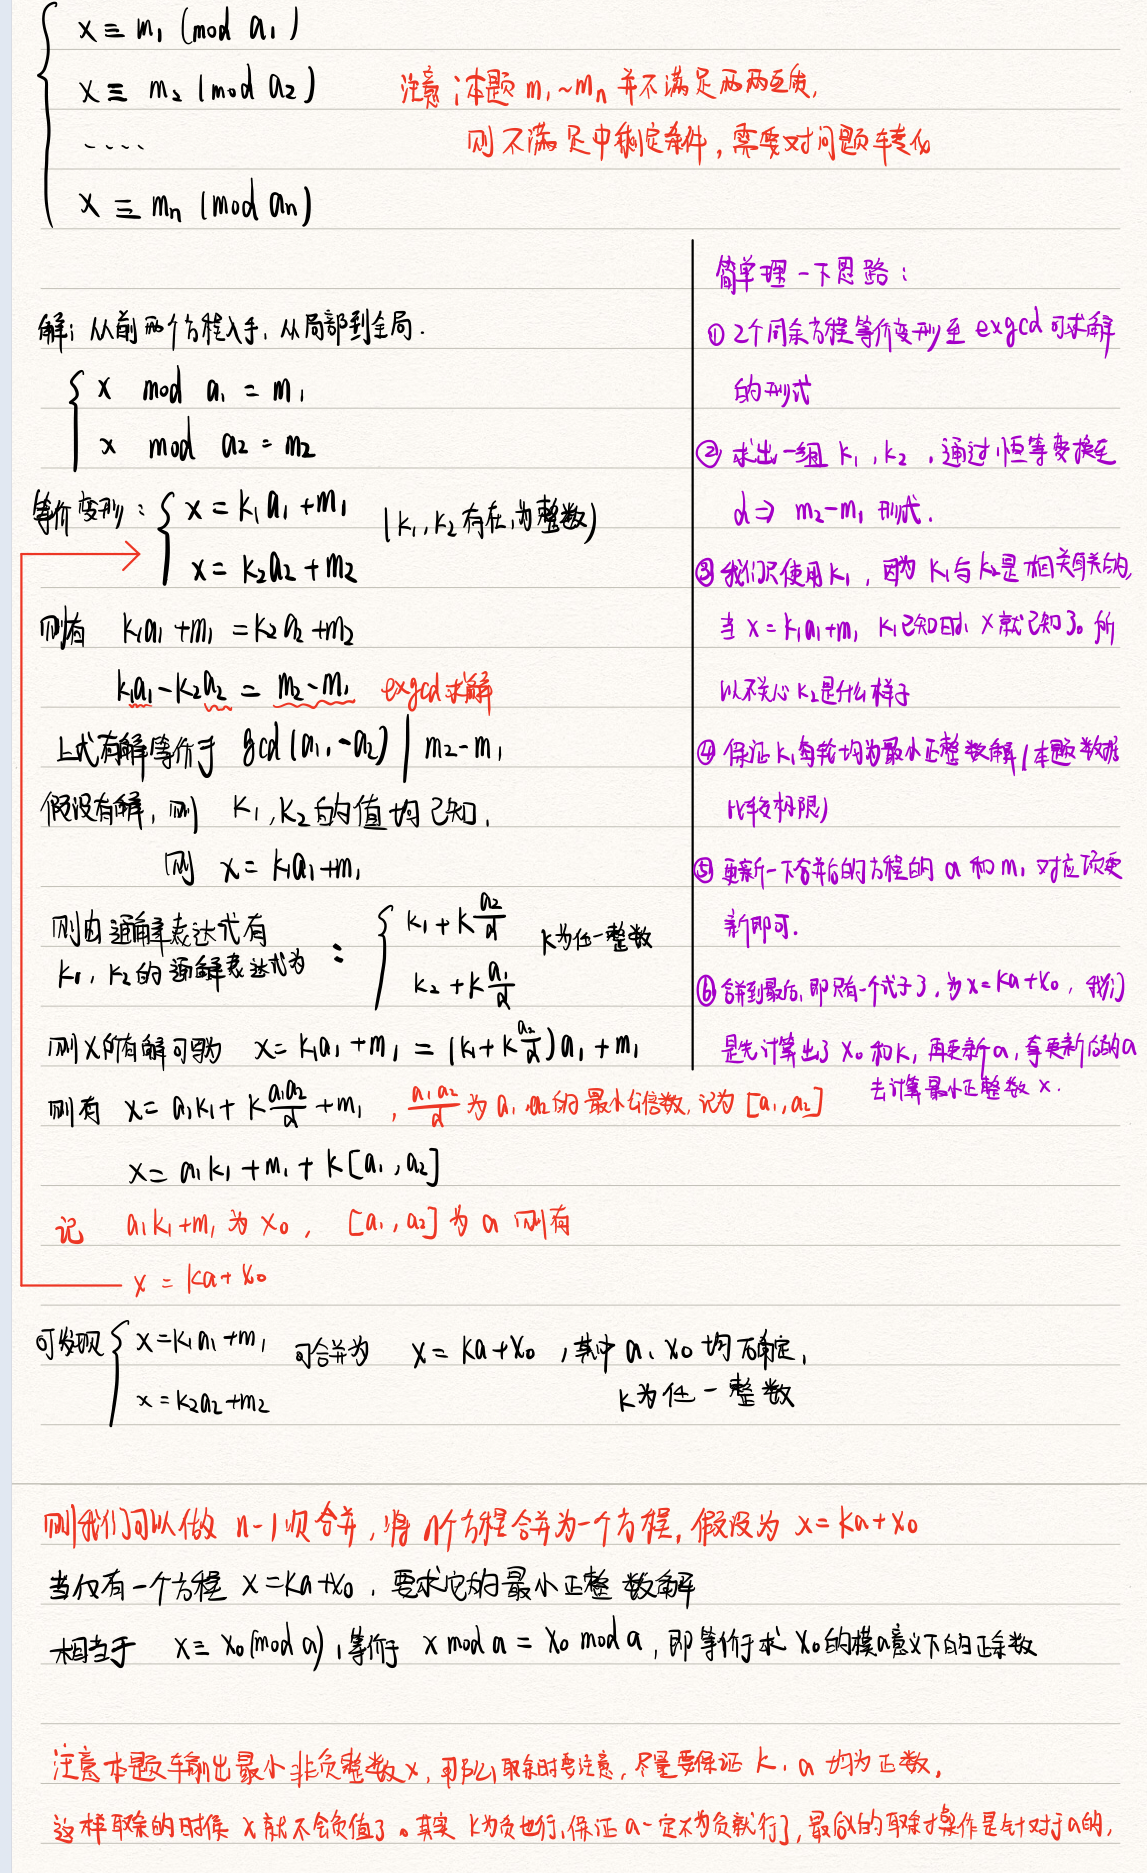 x ≡ m₁ (mod a₁)
x ≡ m₂ (mod a₂)
....
x ≡ mₙ (mod aₙ)
注意:本题 m₁~mₙ 并不满足两两互质,
则不满足中剩定条件,需要对问题转化
解: 从前两个方程入手, 从局部到全局.
x mod a₁ = m₁
x mod a₂ = m₂
等价变形: x = k₁a₁ + m₁
x = k₂a₂ + m₂
(k₁, k₂ 存在,为整数)
则有 k₁a₁ + m₁ = k₂a₂ + m₂
k₁a₁ - k₂a₂ = m₂ - m₁ exgcd求解
上式有解等价于 gcd(a₁, -a₂) | m₂ - m₁
假设有解, 则 k₁, k₂ 的值均已知.
则 x = k₁a₁ + m₁
则由通解表达式有
k₁, k₂ 的通解表达式为 :
k₁ + k a₂/d
k₂ + k a₁/d
k为任一整数
则 x 所有解可写为 x = k₁a₁ + m₁ = (k₁ + k a₂/d) a₁ + m₁
则有 x = a₁k₁ + k a₁a₂/d + m₁ , a₁a₂/d 为 a₁, a₂ 的最小公倍数, 记为 [a₁, a₂]
x = a₁k₁ + m₁ + k[a₁, a₂]
记 a₁k₁ + m₁ 为 x₀, [a₁, a₂] 为 a 则有
x = ka + x₀
可发现 x = k₁a₁ + m₁
x = k₂a₂ + m₂
可合并为 x = ka + x₀ , 其中 a、x₀ 均确定,
k为任一整数
简单理一下思路:
① 2个同余方程等价变形至 exgcd 可求解
的形式
② 求出一组 k₁, k₂ , 通过恒等变换至
d ⇒ m₂ - m₁ 形式.
③ 我们只使用k₁, 因为 k₁与k₂是相关联的,
当 x = k₁a₁ + m₁ k₁已知时 x就已知了。所
以不关心 k₂是什么样子
④ 保证k₁每轮均为最小正整数解(本题数据
比较极限)
⑤ 更新一下合并后的方程的 a 和 m, 对应项更
新即可.
⑥ 合并到最后, 即只有一个式子了, 为 x = ka + x₀, 我们
是先计算出了 x₀ 和 k, 再更新a, 拿更新后的a
去计算最小正整数 x.
则我们可以做 n-1 次合并, 将 n个方程合并为一个方程, 假设为 x = ka + x₀
当仅有一个方程 x = ka + x₀, 要求它的最小正整数解
相当于 x ≡ x₀ (mod a), 等价于 x mod a = x₀ mod a, 即等价于求 x₀的模a意义下的正余数
注意本题输出最小非负整数x, 那么取余时要注意, 尽量要保证 k、a 均为正数.
这样取余的时候 x 就不会负值了。其实 k为负也行, 保证 a一定不为负就行了, 最后的取余操作是针对于a的,